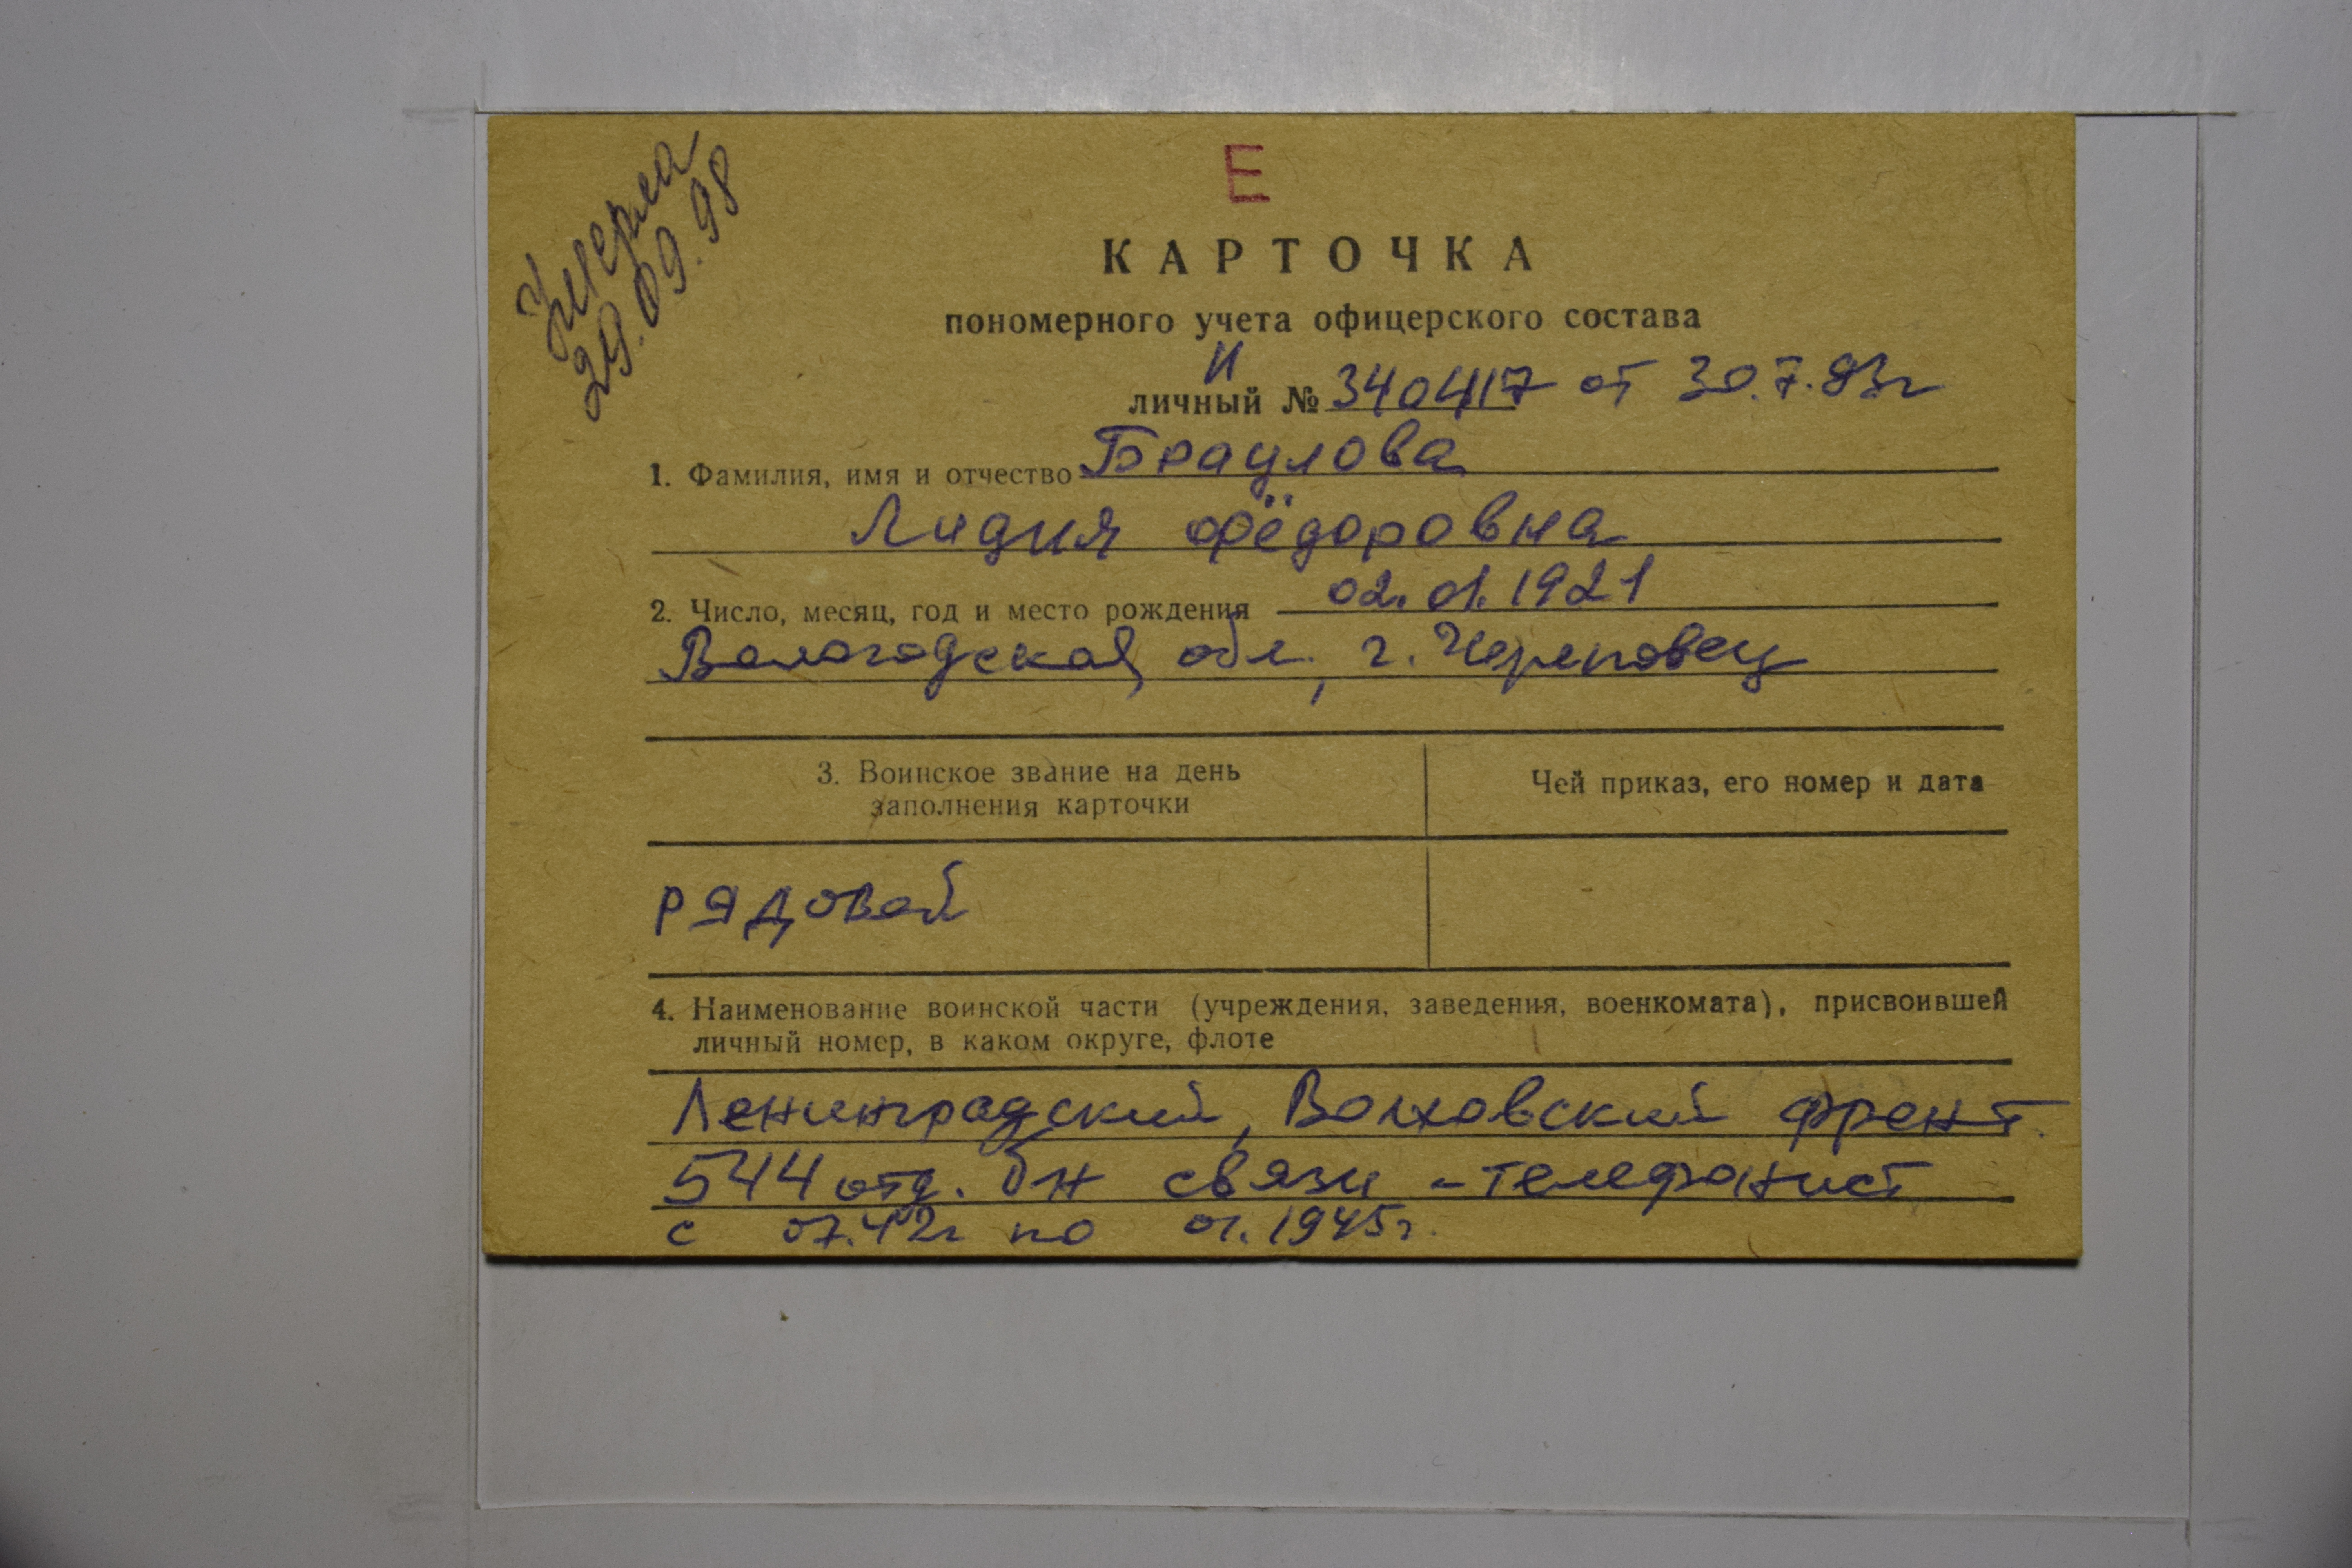 Умерла
29.09.98
Е
КАРТОЧКА
пономерного учета офицерского состава
И
личный № 340417 от 30.7.83г
1. Фамилия, имя и отчество Браулова
Лидия Фёдоровна
2. Число, месяц, год и место рождения 02.01.1921
Вологодская обл., г. Череповец
3. Воинское звание на день
заполнения карточки
Чей приказ, его номер и дата
рядовой
4. Наименование воинской части (учреждения, заведения, военкомата), присвоившей
личный номер, в каком округе, флоте
Ленинградский, Волховский фронт.
544 отд. бн связи - телефонист
с 07.42г по 01.1945г.